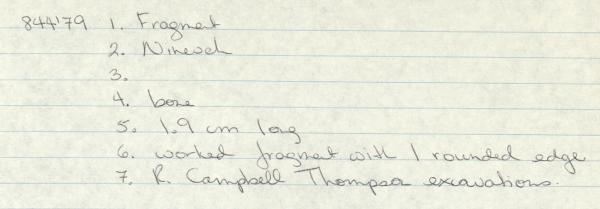 844'79 1. Fragment
2. Nineveh
3.
4. bone
5. 1.9 cm long
6. worked fragment with 1 rounded edge
7. R. Campbell Thompson excavations.